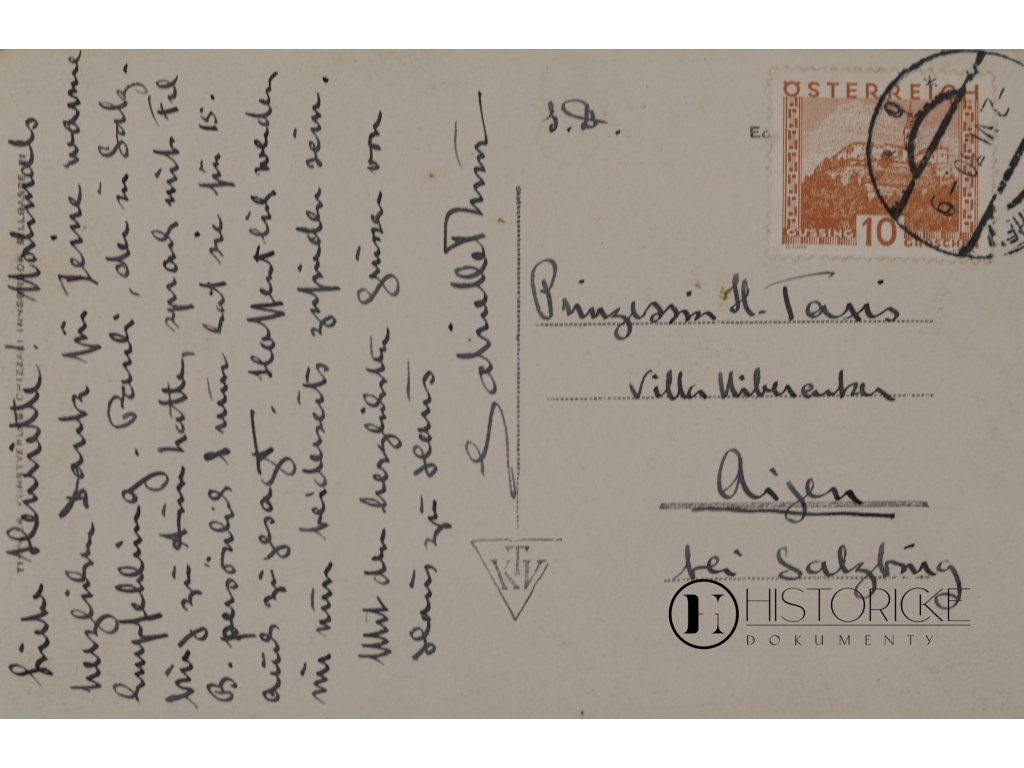 Liebe Henriette! Nochmals
herzlichen Dank für Deine warme
Empfehlung. Pauli, der in Salz-
burg zu tun hatte, sprach mit Frl
B. persönlich & nun hat sie für 15.
auch zugesagt. Hoffentlich werden
wir nun beiderseits zufrieden sein.
Mit den herzlichsten Grüssen von
Haus zu Haus
Gabrielle Thun
TIROLER KUNSTVERLAG CHIZZALI INNSBRUCK
KTV
I.D.
ÖSTERREICH
GÜSSING 10 GROSCHEN
Prinzessin H. Taxis
Villa
Aigen
bei Salzburg
HISTORICKÉ
DOKUMENTY